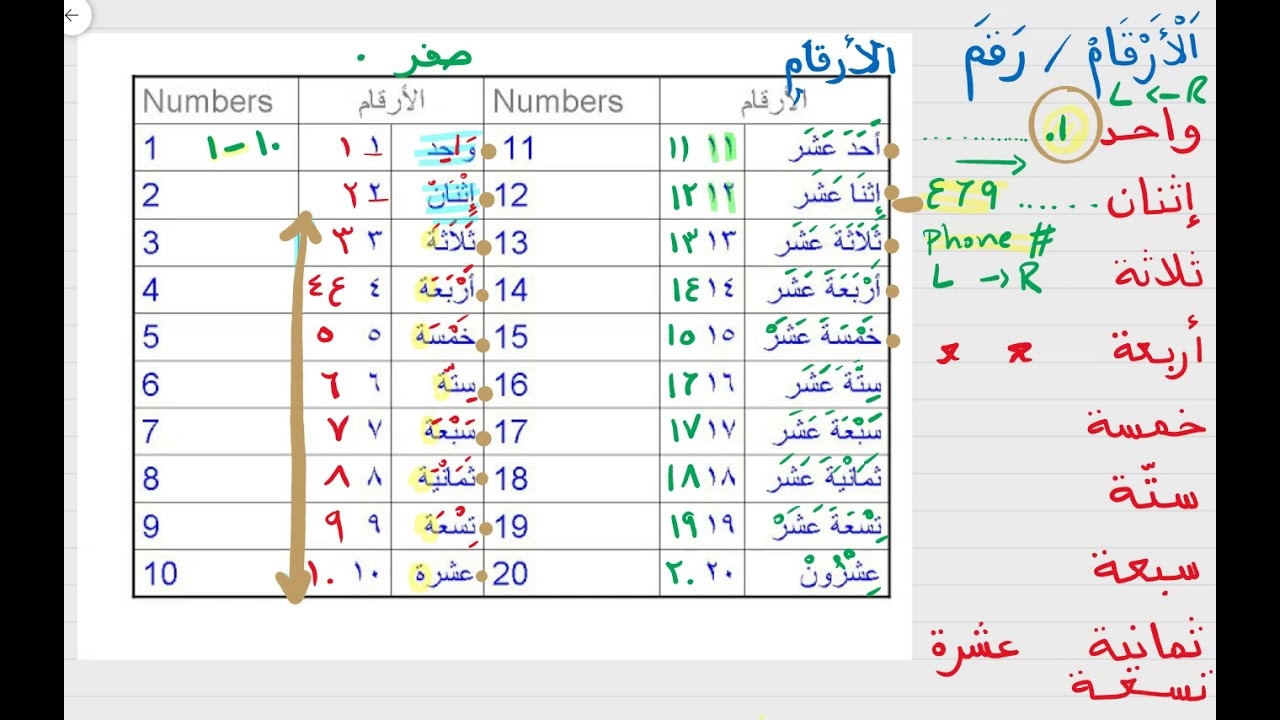 صفر ٠
الأرقام
Numbers الأرقام Numbers الأرقام
1 ١-١٠ ١ ١ وَاحِد 11 ١١ ١١ أَحَدَ عَشَر
2 ٢ ٢ إِثْنَانْ 12 ١٢ ١٢ اثنَا عَشَر
3 ٣ ٣ ثَلَاثَة 13 ١٣ ١٣ ثَلَاثَةَ عَشَر
4 ٤ ٤ ٤ أَرْبَعَة 14 ١٤ ١٤ أَرْبَعَةَ عَشَر
5 ٥ ٥ خَمْسَة 15 ١٥ ١٥ خَمْسَةَ عَشَرْ
6 ٦ ٦ سِتَّة 16 ١٦ ١٦ سِتَّةَ عَشَر
7 ٧ ٧ سَبْعَة 17 ١٧ ١٧ سَبْعَةَ عَشَر
8 ٨ ٨ ثَمَانْيَة 18 ١٨ ١٨ ثَمَانْيَةَ عَشَر
9 ٩ ٩ تِسْعَة 19 ١٩ ١٩ تِسْعَةَ عَشَرْ
10 ١٠ ١٠ عشرة 20 ٢٠ ٢٠ عِشْرُونْ
اَلْأَرْقَامْ / رَقَمَ
L <- R
واحد ١٠ ............
إثنان ...... ٤٦٩
Phone #
L -> R
ثلاثة
أربعة
خمسة
ستّة
سبعة
ثمانية عشرة
تسعة